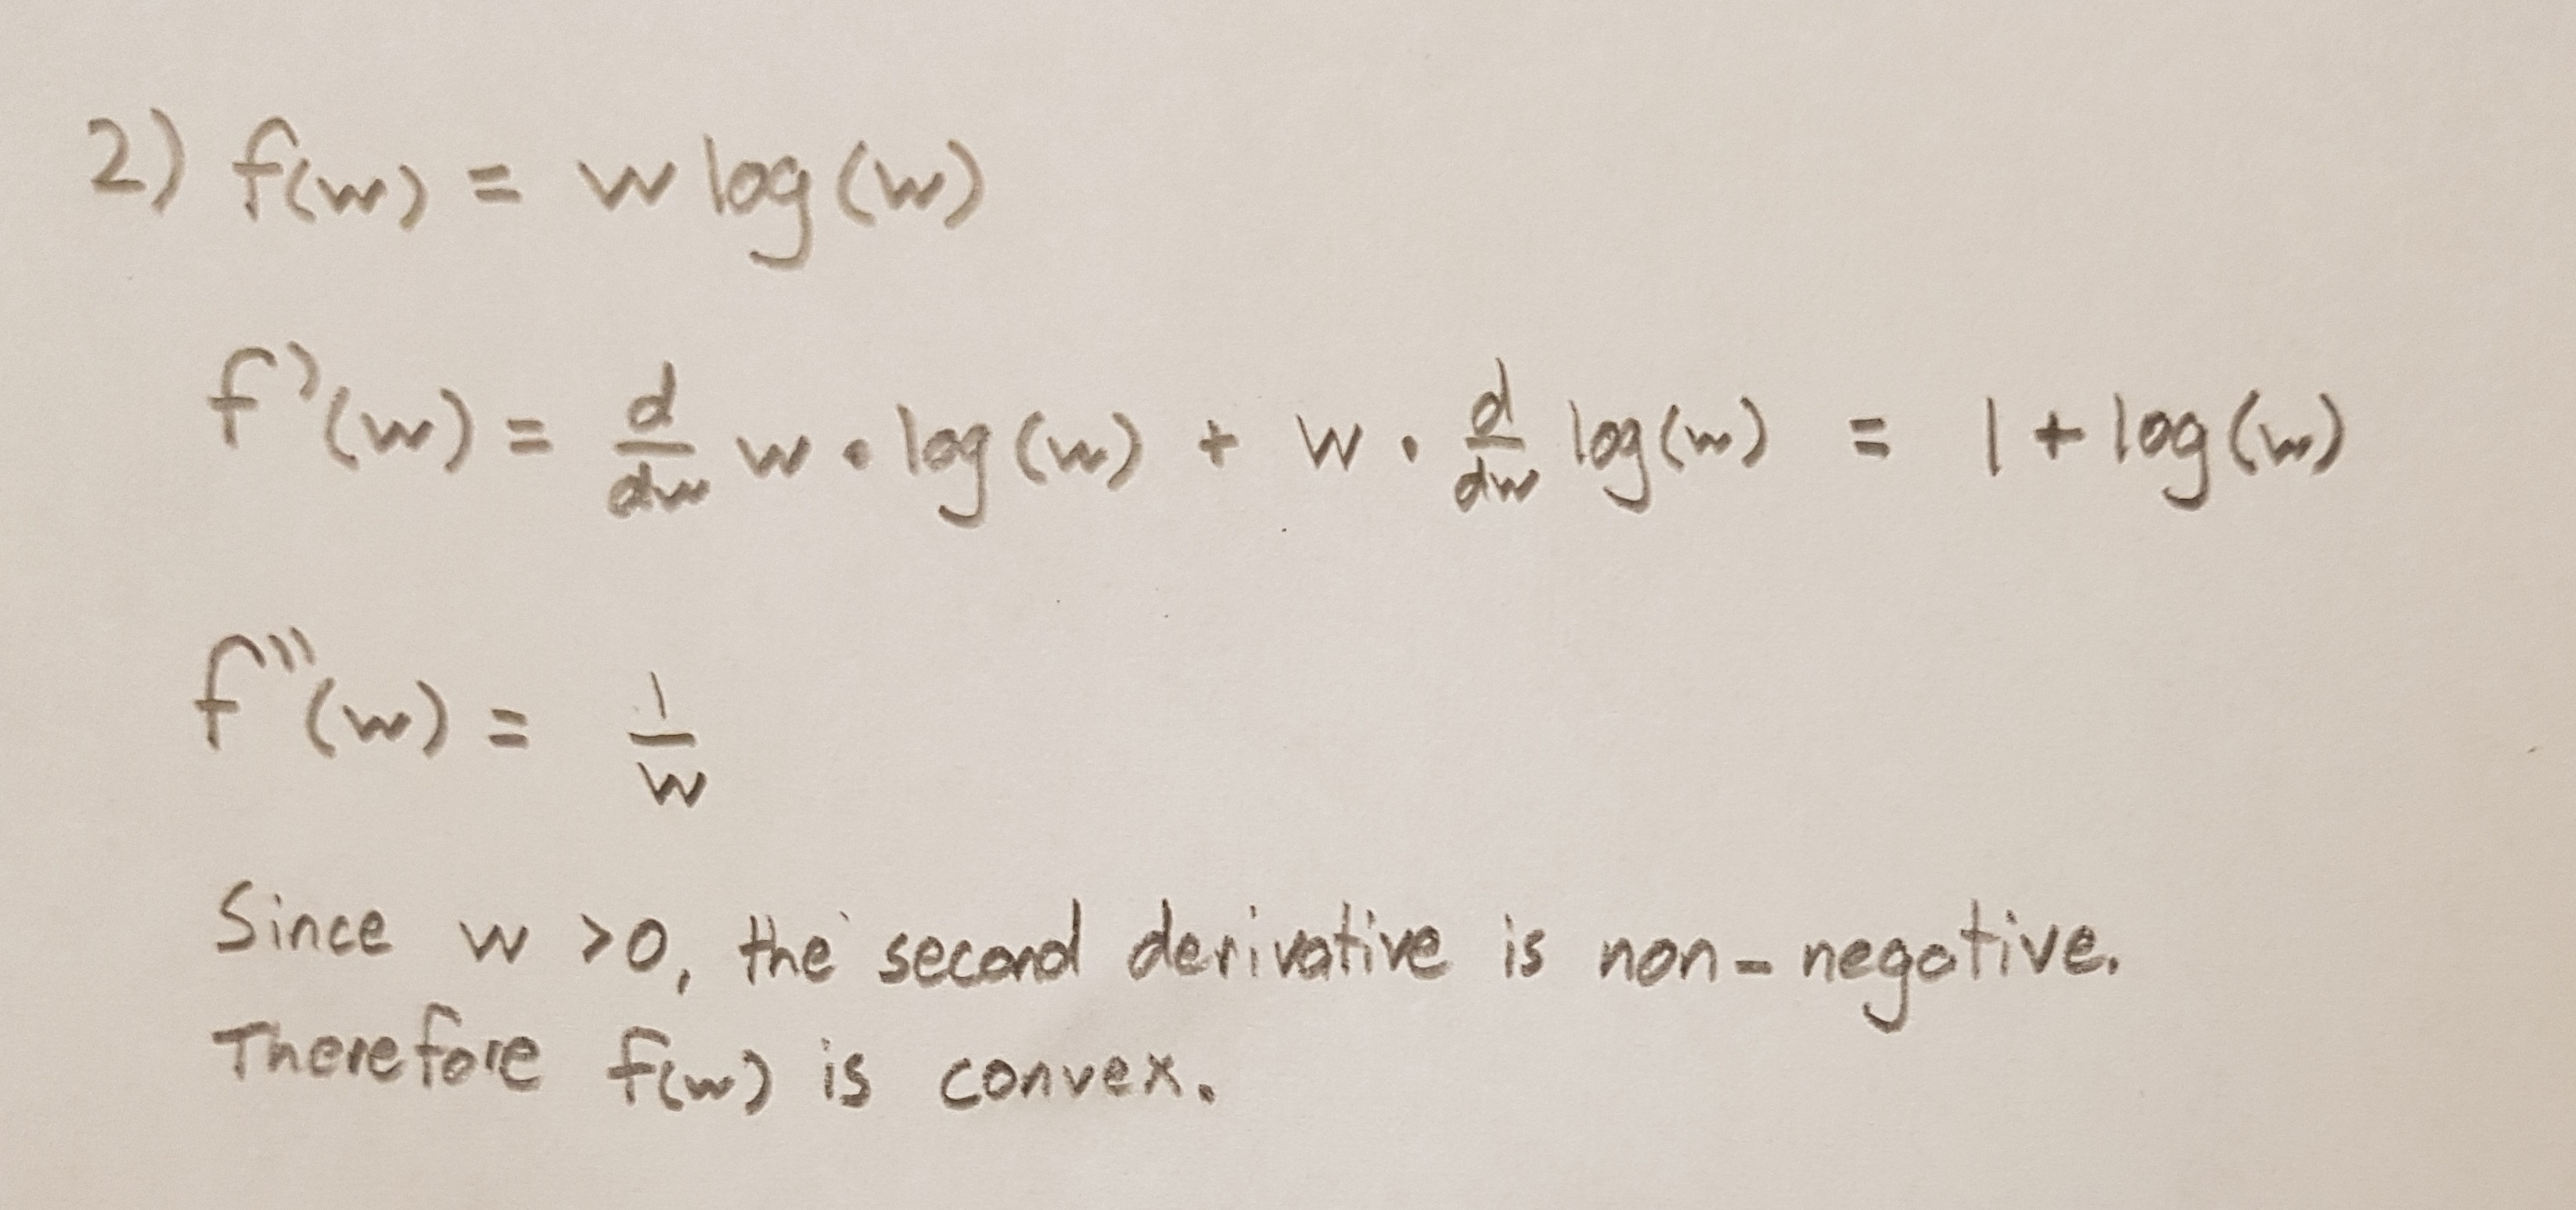 2) f(w) = w log(w)
f'(w) = d/dw w • log(w) + w • d/dw log(w) = 1 + log(w)
f''(w) = 1/w
Since w >0, the second derivative is non-negative.
Therefore f(w) is convex.